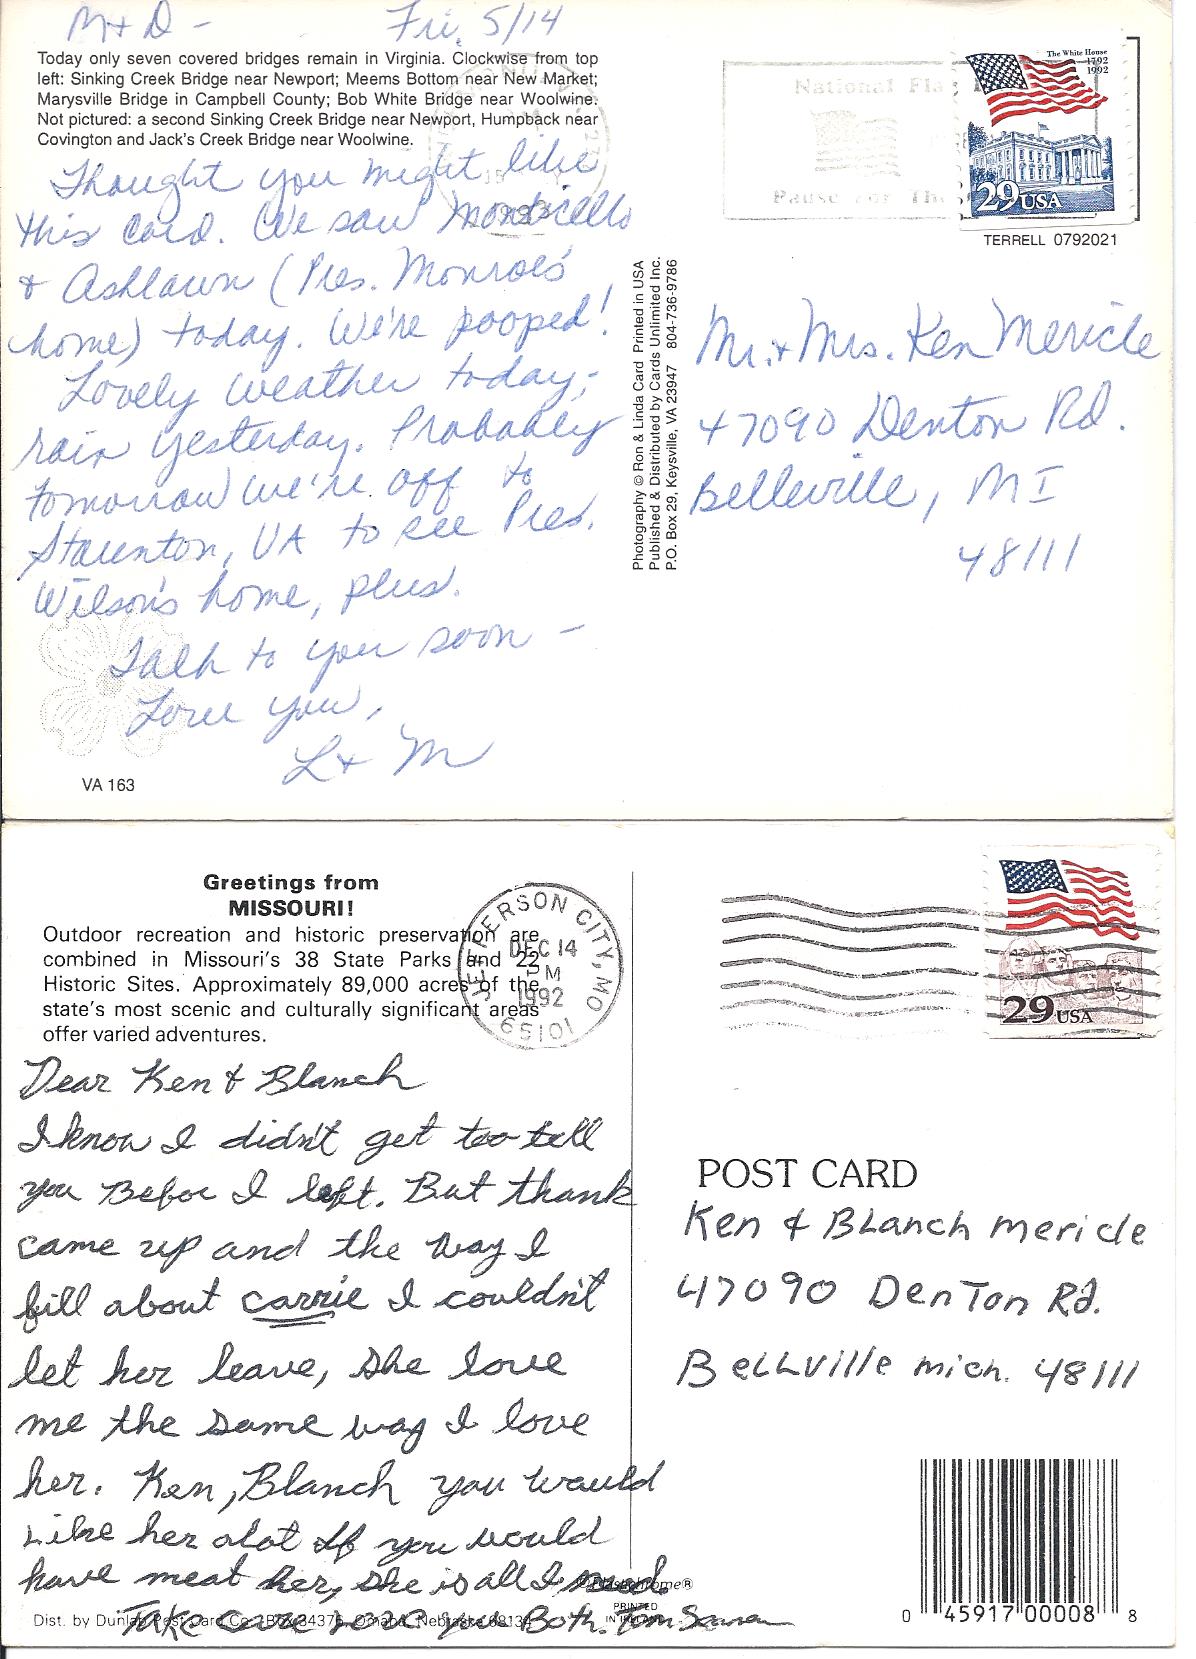 M + D -    Fri. 5/14
Today only seven covered bridges remain in Virginia. Clockwise from top
left: Sinking Creek Bridge near Newport; Meems Bottom near New Market;
Marysville Bridge in Campbell County; Bob White Bridge near Woolwine.
Not pictured: a second Sinking Creek Bridge near Newport, Humpback near
Covington and Jack's Creek Bridge near Woolwine.
Thought you might like
this card. We saw Monticello
& Ashlawn (Pres. Monroe's
home) today. We're pooped!
Lovely weather today,-
rain yesterday. Probably
tomorrow we're off to
Staunton, VA to see Pres.
Wilson's home, plus.
Talk to you soon -
Love you,
L + M
VA 163
Photography © Ron & Linda Card Printed in USA
Published & Distributed by Cards Unlimited Inc.
P.O. Box 29, Keysville, VA 23947 804-736-9786
National Fla
Pause For The
The White House
1792
1992
29 USA
TERRELL 0792021
Mr. + Mrs. Ken Mericle
47090 Denton Rd.
Belleville, MI
48111
Greetings from
MISSOURI!
Outdoor recreation and historic preservation are
combined in Missouri's 38 State Parks and 22
Historic Sites. Approximately 89,000 acres of the
state's most scenic and culturally significant areas
offer varied adventures.
JEFFERSON CITY, MO
DEC 14
PM
1992
65101
29 USA
Dear Ken & Blanch
I know I didn't get too tell
you Befoe I left. But thank
came up and the way I
fill about carrie I couldn't
let her leave, she love
me the same way I love
her. Ken, Blanch you would
Like her alot If you would
have meat her, she is all I need
Take care Love you Both. Tom
Dist. by Dunlap Post Card Co., Box 34376, Omaha, Nebraska 68134
POST CARD
Ken & Blanch mericle
47090 Denton Rd.
Bellville mich. 48111
PRINTED
IN IRELAND
0 45917 00008 8